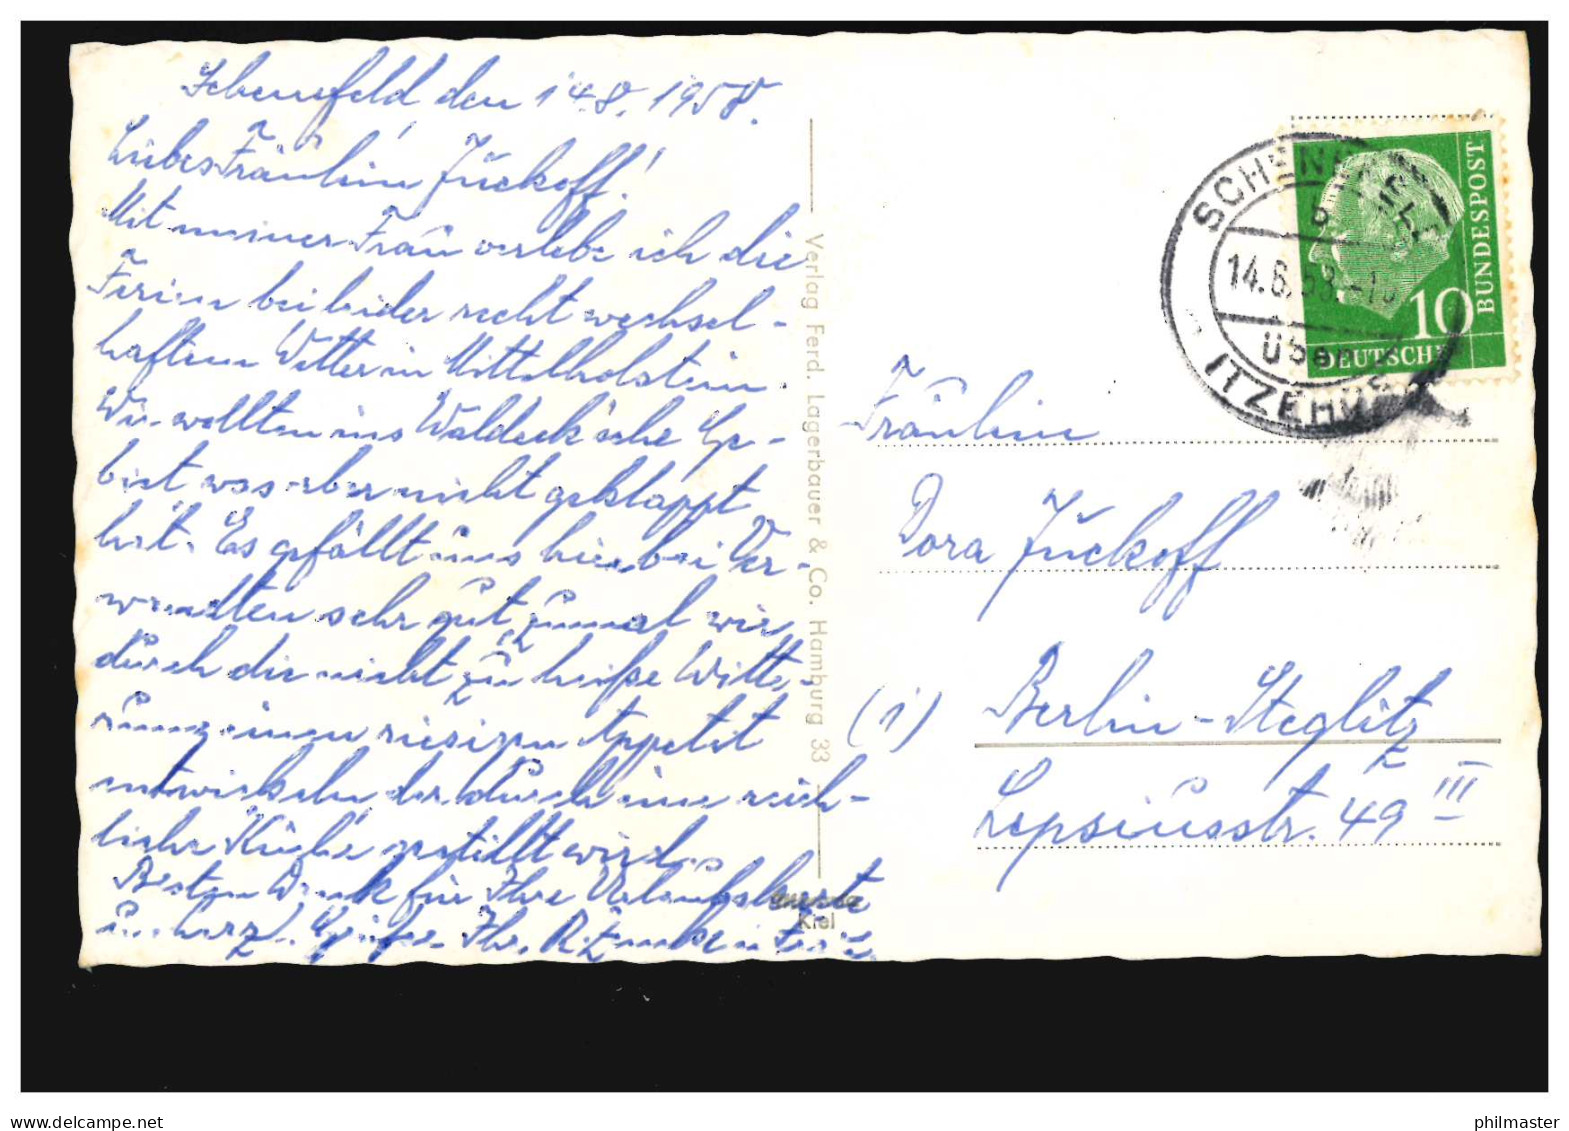 den 14.8.1958.
Liebes Fräulein Juckoff!
Mit meiner Frau verlebe ich die
Ferien bei leider recht wechsel-
haftem Wetter in Mittelholstein.
Wir wollten ins Waldeck'sche Ge-
biet was aber nicht geklappt
hat. Es gefällt uns hier bei Ver-
wandten sehr gut zumal wir
durch die nicht zu heiße Witte-
rung einen riesigen Appetit
entwickeln der durch eine reich-
liche Küche gestillt wird.
Besten Dank für Ihre Urlaubskarte
u. herzl. Grüße Ihr
Verlag Ferd. Lagerbauer & Co. Hamburg 33
Kiel
SCHENEFELD
b
14.8.58.-1
über
ITZEHOE
DEUTSCHE
BUNDESPOST
10
Fräulein
Dora Juckoff
(1) Berlin-Steglitz
Lepsiusstr. 49 III
www.delcampe.net
philmaster